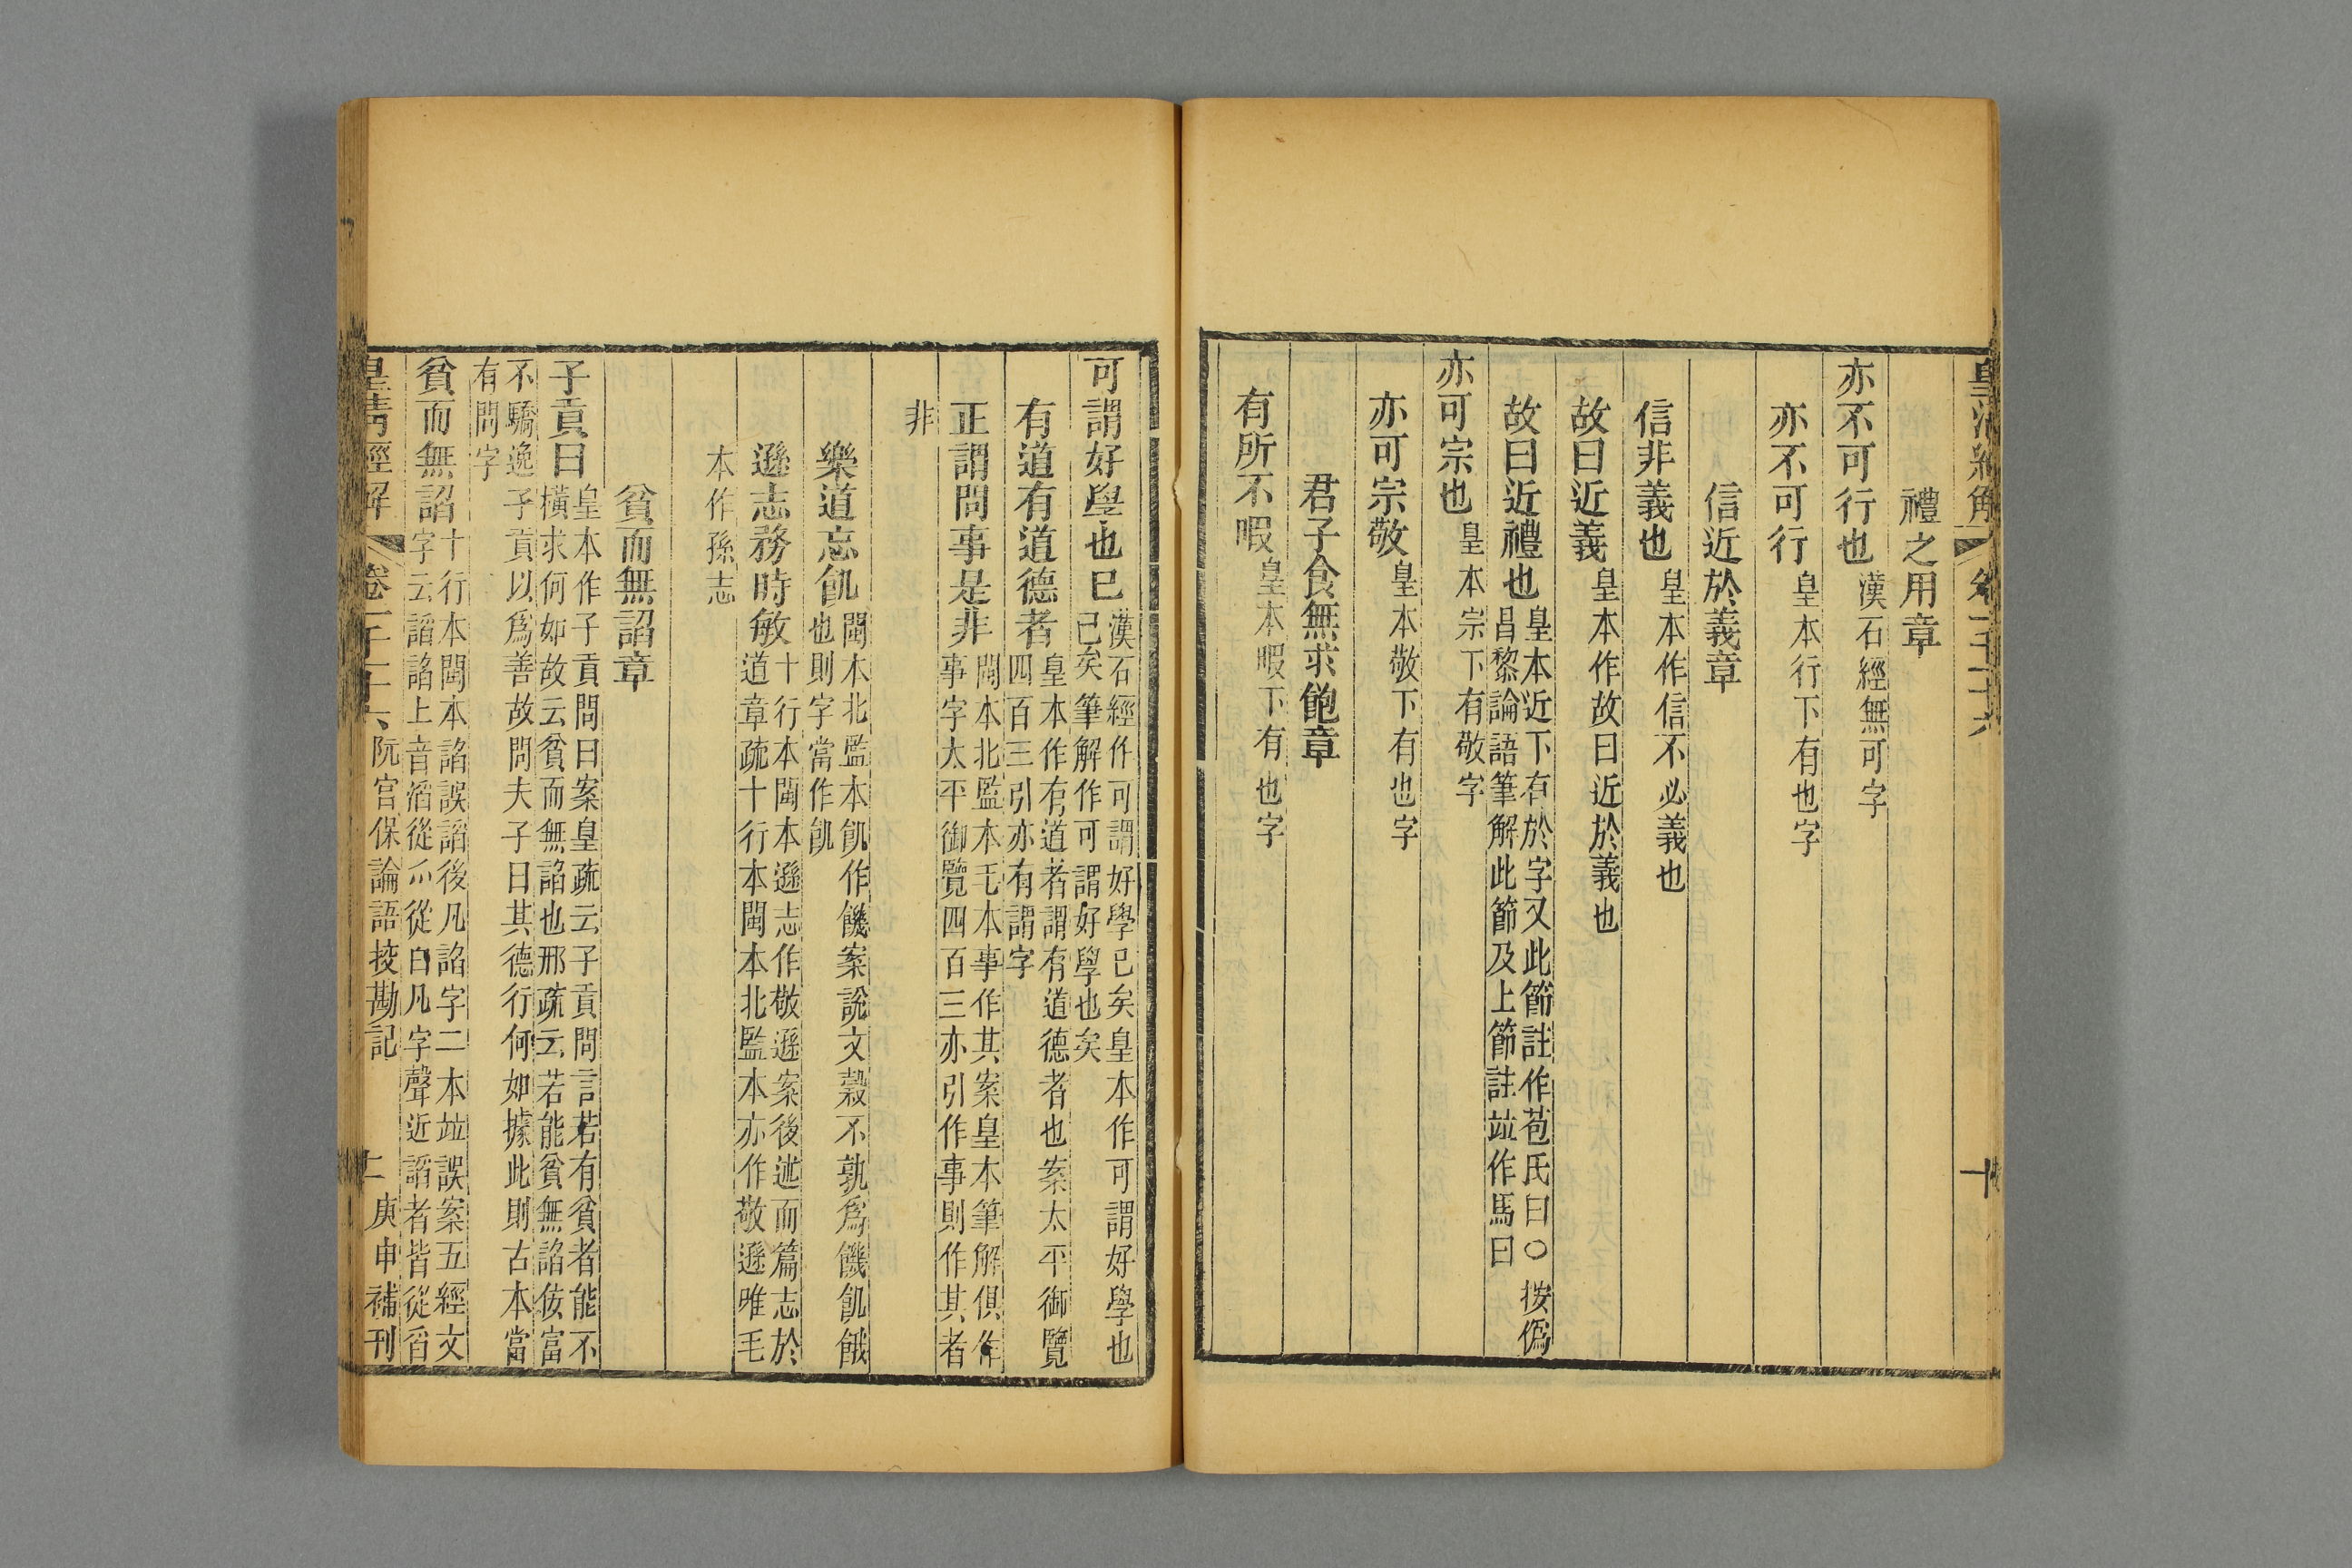 禮之用章
亦不可行也漢石經無可字
亦不可行皇本行下有也字
信近於義章
信非義也皇本作信不必義也
故曰近義皇本作故曰近於義也
故曰近禮也皇本近下有於字又此節註作苞氏曰○按僞
昌黎論語筆解此節及上節註竝作馬曰
亦可宗也皇本宗下有敬字
亦可宗敬皇本敬下有也字
君子食無求飽章
有所不暇皇本暇下有也字
可謂好學也已漢石經作可謂好學已矣皇本作可謂好學也
已矣筆解作可謂好學也矣
有道有道德者皇本作有道者謂有道德者也案太平御覽
四百三引亦有謂字
正謂問事是非閩本北監本毛本事作其案皇本筆解俱作
事字太平御覽四百三亦引作事則作其者
非
樂道忘飢閩本北監本飢作饑案說文穀不孰爲饑飢餓
也則字當作飢
遜志務時敏十行本閩本遜志作敬遜案後述而篇志於
道章疏十行本閩本北監本亦作敬遜唯毛
本作孫志
貧而無諂章
子貢曰皇本作子貢問曰案皇疏云子貢問言若有貧者能不
橫求何如故云貧而無諂也邢疏云若能貧無諂佞富
不驕逸子貢以爲善故問夫子曰其德行何如據此則古本當
有問字
貧而無諂十行本閩本諂誤謟後凡諂字二本竝誤案五經文
字云謟諂上音滔從爪從臼凡字聲近謟者皆從舀
皇清經解 卷一千十六 阮宮保論語挍勘記 十一 庚申補刊